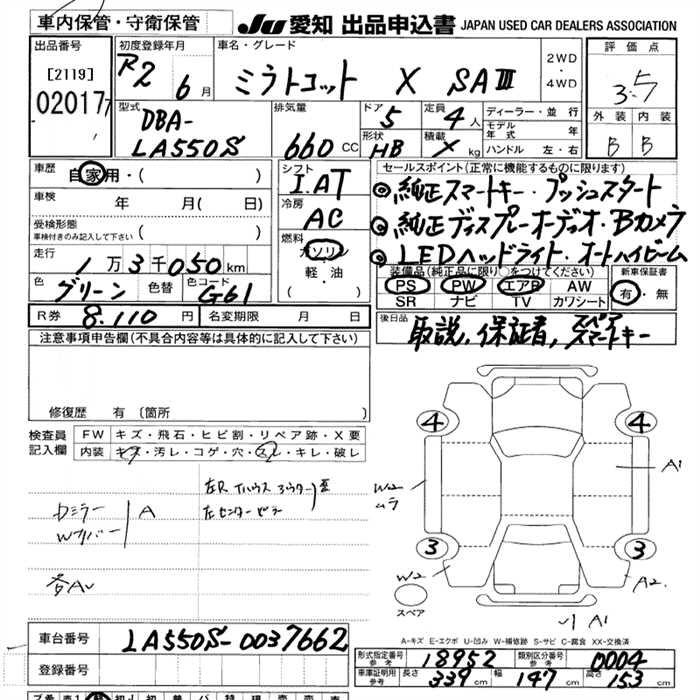 車内保管・守衛保管
JU 愛知 出品申込書 JAPAN USED CAR DEALERS ASSOCIATION
出品番号
[2119]
02017
初度登録年月
R2 6月
車名・グレード
ミラトコット X SAIII
2WD
・
4WD
評価点
3.5
外装 内装
B B
型式
DBA-
LA550S
排気量
660 CC
ドア
5
定員
4人
形状
HB
積載
X kg
ディーラー・並行
モデル
年式 年
ハンドル 左・右
車歴
自家用・( )
車検
年 月( 日)
受検形態
車検付きのみ記入して下さい ( )
走行
1万3千050km
色
グリーン
色替
色コード
G61
シフト
I.AT
冷房
AC
燃料
ガソリン
・
軽・油
( )
セールスポイント(正常に機能するものに限ります)
◎純正スマートキー・プッシュスタート
◎純正ディスプレーオーディオ・Bカメラ
◎LEDヘッドライト・オートハイビーム
装備品(純正品に限り○をつけてください)
PS PW エアB AW
SR ナビ TV カワシート
新車保証書
有・無
R券 8.110 円
名変期限 月 日
後日品
取説, 保証書, スペアスマートキー
注意事項申告欄(不具合内容等は具体的に記入して下さい)
修復歴 有 〔箇所 〕
検査員
記入欄
FW キズ・飛石・ヒビ割・リペア跡・X要
内装 キズ・汚レ・コゲ・穴・スレ・キレ・破レ
Wカバー A
左センターピラー
各AU
4 4
3 3
A1
W2
ムラ
W2
A2
スペア
A1
A-キズ E-エクボ U-凹み W-補修跡 S-サビ C-腐食 XX-交換済
車台番号
LA550S-0037662
登録番号
形式指定番号
参考
18952
類別区分番号
参考
0004
車庫証明用
参考
長さ 339 cm 幅 147 cm 高さ 153 cm